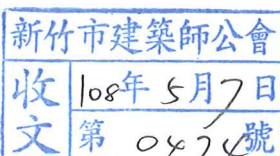 新竹市建築師公會
收文
108年5月7日
第0474號